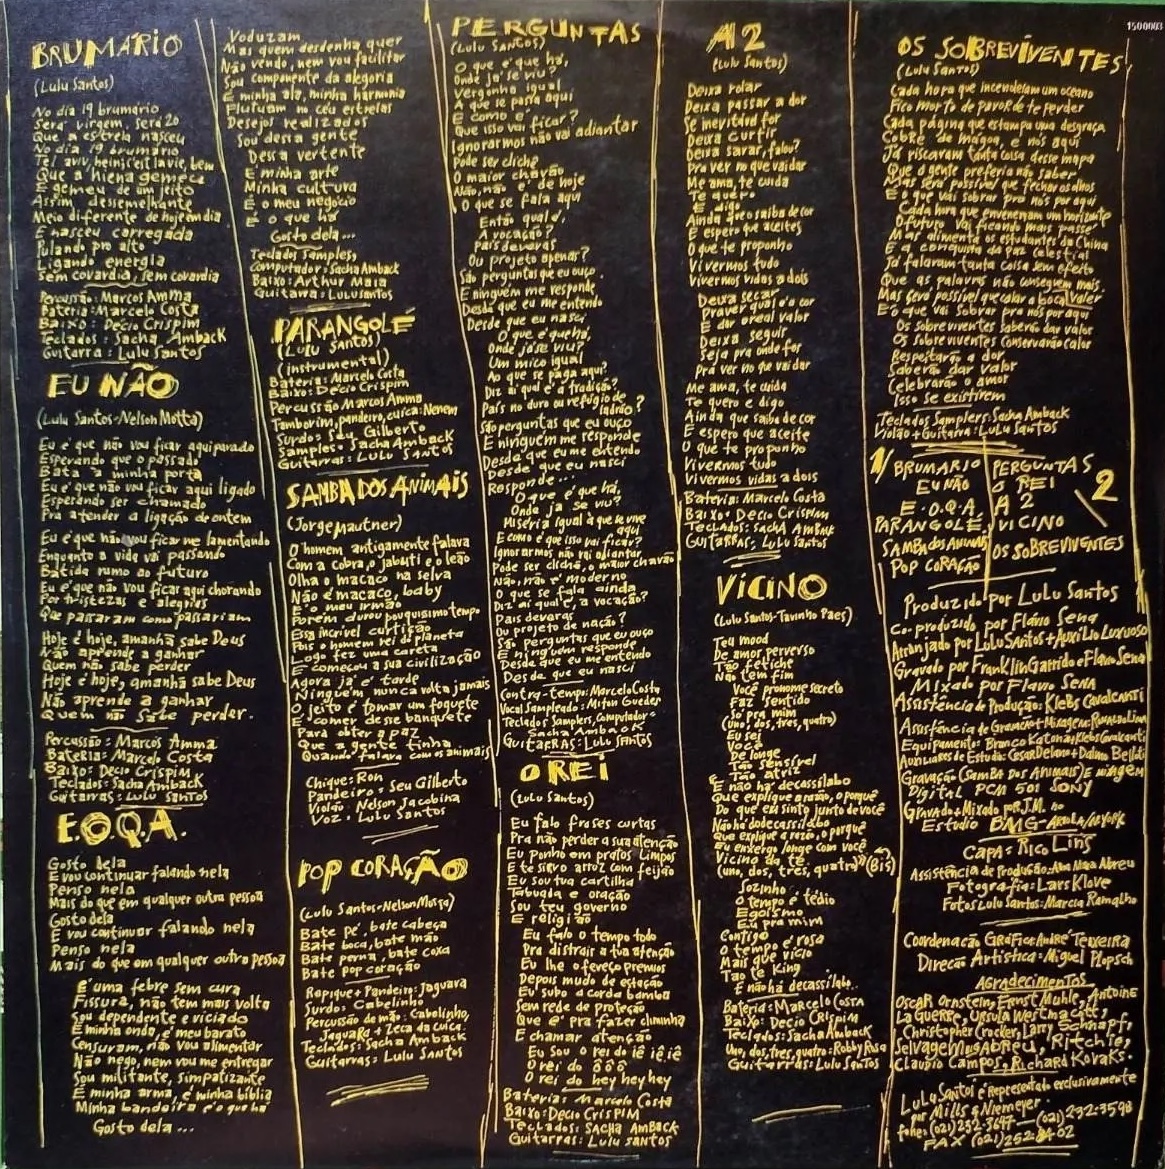 BRUMÁRIO
(Lulu Santos)
No dia 19 brumário
Será virgem, será 20
Que a estrela nasceu
No dia 19 brumário,
Tel aviv, heinic'est la vie, bem
Que a hiena gemeca
E gemeu de um jeito
Assim dessemelhante
Meio diferente de hoje em dia
E nasceu carregada
Pulando pro alto
Ligando energia
Sem covardia, sem covardia
Percussão: Marcos Amma
Bateria: Marcelo Costa
Baixo: Decio Crispim
Teclados: Sacha Amback
Guitarra: Lulu Santos
EU NÃO
(Lulu Santos-Nelson Motta)
Eu é que não vou ficar aqui parado
Esperando que o passado
Bata à minha porta
Eu é que não vou ficar aqui ligado
Esperando ser chamado
Pra atender a ligação de ontem
Eu é que não vou ficar me lamentando
Enquanto a vida vai passando
Batida rumo ao futuro
Eu é que não vou ficar aqui chorando
Por tristezas e alegrias
Que passaram como passariam
Hoje é hoje, amanhã sabe Deus
Não aprende a ganhar
Quem não sabe perder
Hoje é hoje, amanhã sabe Deus
Não aprende a ganhar
Quem não sabe perder.
Percussão: Marcos Amma
Bateria: Marcelo Costa
Baixo: Decio Crispim
Teclados: Sacha Amback
Guitarras: Lulu Santos
E.O.Q.A.
Gosto dela
E vou continuar falando nela
Penso nela
Mais do que em qualquer outra pessoa
Gosto dela
E vou continuar falando nela
Penso nela
Mais do que em qualquer outra pessoa
E uma febre sem cura
Fissura, não tem mais volta
Sou dependente e viciado
É minha onda, é meu barato
Censuram, não vou alimentar
Não nego, nem vou me entregar
Sou militante, simpatizante
É minha arma, é minha bíblia
Minha bandeira é o que há
Gosto dela ...
Voduzam
Mas quem desdenha quer
Não vendo, nem vou facilitar
Sou componente da alegoria
É minha ala, minha harmonia
Flutuam no céu estrelas
Desejos realizados
Sou dessa gente
Dessa vertente
É minha arte
Minha cultura
É o meu negócio
É o que há
Gosto dela...
Teclados Samplers,
Computador: Sacha Amback
Baixo: Arthur Maia
Guitarra: Lulu Santos
PARANGOLÉ
(Lulu Santos)
(Instrumental)
Bateria: Marcelo Costa
Baixo: Decio Crispim
Percussão Marcos Amma
Tamborim, pandeiro, cuíca: Nenem
Surdo: Seu Gilberto
Samplers: Sacha Amback
Guitarras: Lulu Santos
SAMBA DOS ANIMAIS
(Jorge Mautner)
O homem antigamente falava
Com a cobra, o jabuti e o leão
Olha o macaco na selva
Não é macaco, baby
É o meu irmão
Porém durou pouquíssimo tempo
Essa incrível curtição
Pois o homem rei do planeta
Logo fez uma careta
E começou a sua civilização
Agora já é tarde
Ninguém nunca volta jamais
O jeito é tomar um foguete
E comer desse banquete
Para obter a paz
Que a gente tinha
Quando falava com os animais
Chique: Ron
Pandeiro: Seu Gilberto
Violão: Nelson Jacobina
Voz: Lulu Santos
POP CORAÇÃO
(Lulu Santos-Nelson Motta)
Bate pé, bate cabeça
Bate boca, bate mão
Bate perna, bate coxa
Bate pop coração
Repique+Pandeiro: Jaguara
Surdo: Cabelinho
Percussão de mão: Cabelinho,
Jaguara + Zeca da Cuíca
Teclados: Sacha Amback
Guitarras: Lulu Santos
PERGUNTAS
(Lulu Santos)
O que é que há,
Onde já se viu?
Vergonha igual
A que se passa aqui
E como é?
Que isso vai ficar?
Ignorarmos não vai adiantar
Pode ser clichê
O maior chavão
Não, não é de hoje
O que se fala aqui
Então qual é,
A vocação?
País deveras
Ou projeto apenas?
São perguntas que eu ouço
E ninguém me responde
Desde que eu me entendo
Desde que eu nasci
O que é que há,
Onde já se viu?
Um mico igual
Ao que se paga aqui?
Diz aí qual é a tradição?
País no duro ou refúgio de ladrão?
São perguntas que eu ouço
E ninguém me responde
Desde que eu me entendo
Desde que eu nasci
Responde...
O que é que há,
Onde já se viu?
Miséria igual à que se vive aqui
E como é que isso vai ficar?
Ignorarmos não vai adiantar
Pode ser clichê, o maior chavão
Não, não é moderno
O que se fala ainda
Diz aí qual é, a vocação?
País deveras
Ou projeto de nação?
São perguntas que eu ouço
E ninguém responde
Desde que eu me entendo
Desde que eu nasci
Contra-tempo: Marcelo Costa
Vocal Sampleado: Milton Guedes
Teclados Samplers, Computador:
Sacha Amback
Guitarras: Lulu Santos
O REI
(Lulu Santos)
Eu falo frases curtas
Pra não perder a sua atenção
Eu ponho em pratos limpos
E te sirvo arroz com feijão
Eu sou tua cartilha
Tabuada e oração
Sou teu governo
E religião
Eu falo o tempo todo
Pra distrair a tua atenção
Eu lhe ofereço prêmios
Depois mudo de estação
Eu subo a corda bamba
Sem rede de proteção
Que é pra fazer chminha
E chamar atenção
Eu Sou o rei do iê iê iê
O rei do ô ô ô
O rei do hey hey hey
Bateria: Marcelo Costa
Baixo: Decio Crispim
Teclados: Sacha Amback
Guitarras: Lulu Santos
A2
(Lulu Santos)
Deixa rolar
Deixa passar a dor
Se inevitável for
Deixa curtir
Deixa sarar, falou?
Pra ver no que vai dar
Me ama, te cuida
Te quero
E digo
Ainda que o saiba de cor
E espero que aceites
O que te proponho
Vivermos tudo
Vivermos vidas a dois
Deixa secar
Pra ver qual é a cor
E dar o real valor
Deixa seguir
Seja pra onde for
Pra ver no que vai dar
Me ama, te cuida
Te quero e digo
Ainda que saiba de cor
E espero que aceite
O que te proponho
Vivermos tudo
Vivermos vidas a dois
Bateria: Marcelo Costa
Baixo: Decio Crispim
Teclados: Sacha Amback
Guitarras: Lulu Santos
VICINO
(Lulu Santos-Tavinho Paes)
Teu mood
De amor perverso
Tão fetiche
Não tem fim
Você pronome secreto
Faz sentido
Só pra mim
(Uno, dos, tres, quatro)
Eu sei
Você
De longe
Tão sensível
Tão atriz
E não há decassílabo
Que explique a razão, o porquê
Do que eu sinto junto de você
Não há decassílabo
Que explique a razão, o porquê
Eu enxergo longe com você
Vicino da te.
(uno, dos, tres, quatro) (Bis)
Sozinho
O tempo é tédio
Egoísmo
Eu pra mim
Contigo
O tempo é rosa
Mais que vício
Tao te King
E não há decassílabo..
Bateria: Marcelo Costa
Baixo: Decio Crispim
Teclados: Sacha Amback
Uno, dos, tres, quatro: Robby Rosa
Guitarras: Lulu Santos
1500003
OS SOBREVIVENTES
(Lulu Santos)
Cada hora que incendeiam um oceano
Fico morto de pavor de te perder
Cada página que estampa uma desgraça
Cobre de mágoa, e nós aqui
Já riscaram tanta coisa desse mapa
Que a gente preferia não saber
Mas será possível que fechar os olhos
É o que vai sobrar pra nós por aqui
Cada hora que envenenam um horizonte
O futuro vai ficando mais passé
Mas alimenta os estudantes da China
E a conquista da paz celestial
Já falaram tanta coisa sem efeito
Que as palavras não conseguem mais valer
Mas será possível que calar a boca
É o que vai sobrar pra nós por aqui
Os sobreviventes saberão dar valor
Os sobreviventes conservarão calor
Respeitarão a dor
Saberão dar valor
Celebrarão o amor
Isso se existirem
Teclados Samplers: Sacha Amback
Violão+Guitarra: Lulu Santos
1/ BRUMARIO
EU NÃO
E.O.Q.A.
PARANGOLÉ
SAMBA dos ANIMAIS
POP CORAÇÃO
PERGUNTAS \2
O REI
A 2
VICINO
OS SOBREVIVENTES
Produzido por Lulu Santos
Co-produzido por Flavio Sena
Arranjado por Lulu Santos + Auxílio Luxuoso
Gravado por Franklin Garrido e Flavio Sena
Mixado por Flavio Sena
Assistência de Produção: Klebs Cavalcanti
Assistência de Gravação+Mixagem:
Equipamento: Branco Katona+Klebs Cavalcanti
Auxiliares de Estúdio: Cesar Delano+Dalmo Bellati
Gravação (Samba dos Animais) E mixagem
Digital PCM 501 SONY
Gravado+Mixado por R.J.M. no
Estudio BMG-Ariola/
CAPA: Rico Lins
Assistência de Produção: Ana Abreu
Fotografia: Lars Klove
Fotos Lulu Santos: Marcia Ramalho
Coordenação Gráfica: André Teixeira
Direcão Artistica: Miguel Plopschi
AGRADECIMENTOS
Oscar Ornstein, Ernst Muhle, Antoine
La Guerre, Ursula Westmacott,
Christopher Crocker, Larry Schnapf,
Selvagem Abreu, Ritchie,
Claudio Campos, Richard Kovaks.
Lulu Santos é Representado exclusivamente
por Mills & Niemeyer.
fones (021) 232-3647 — (021) 232-3598
FAX (021) 252-8402